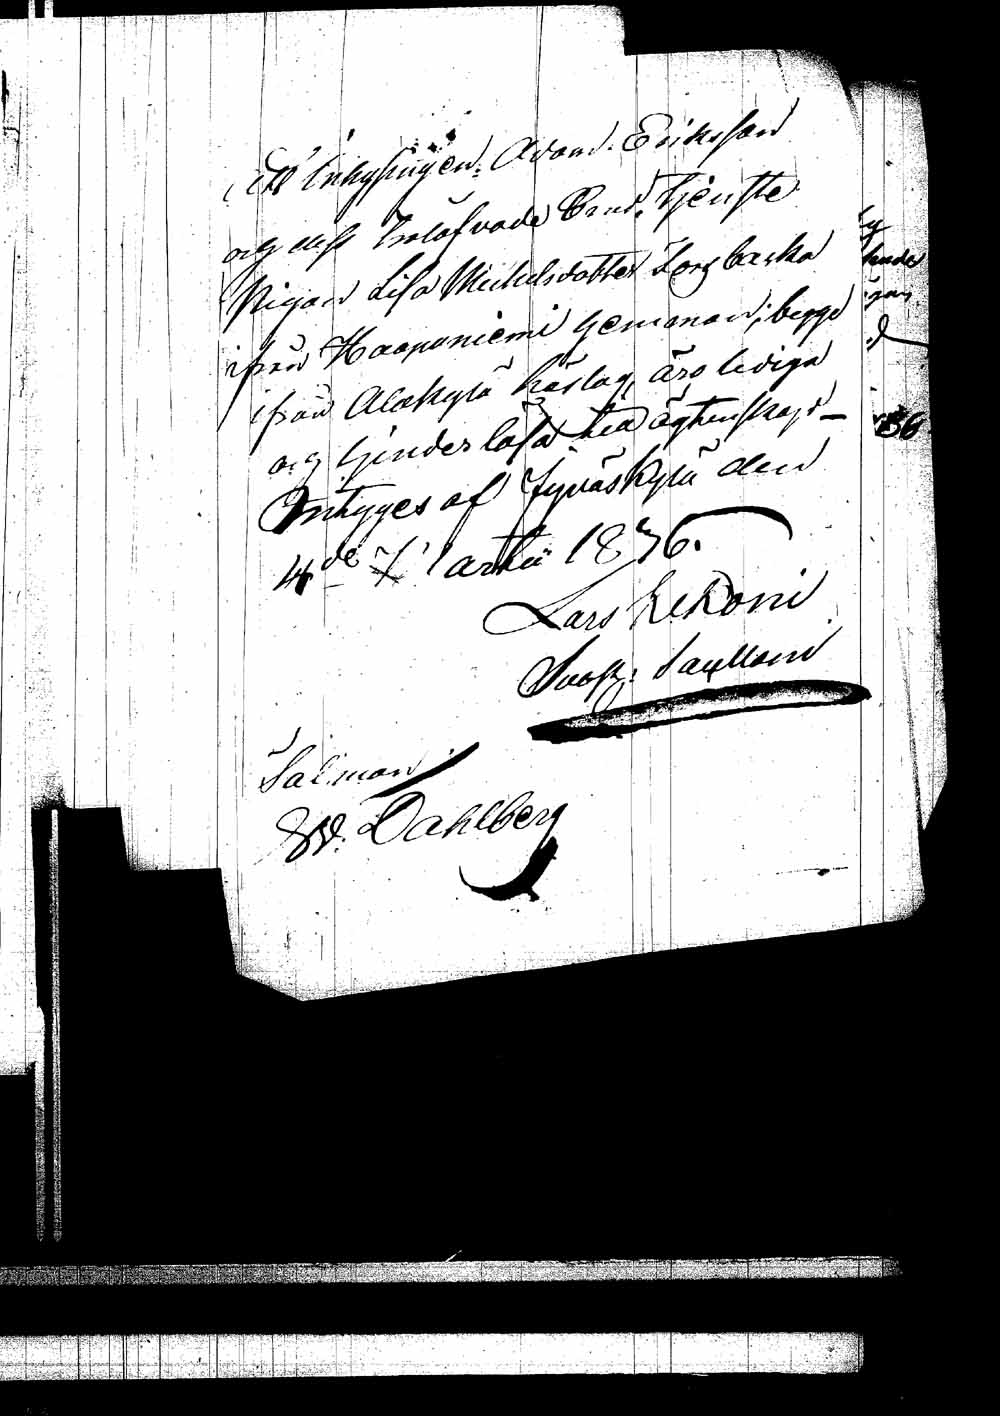 Att Inhysingen. Adam. Eriksson
og dess trolofvade Brud. tjenste
Pigan Lisa Michelsdotter
ifrån Haaponiemi hemman; begge
ifrån Alakylä byslag, äro lediga
og hinderlösa til äghtenskap –
Intyges af Jyväskylä den
4de Martii 1836.
Lars Kekoni
Salmon
W. Dahlberg